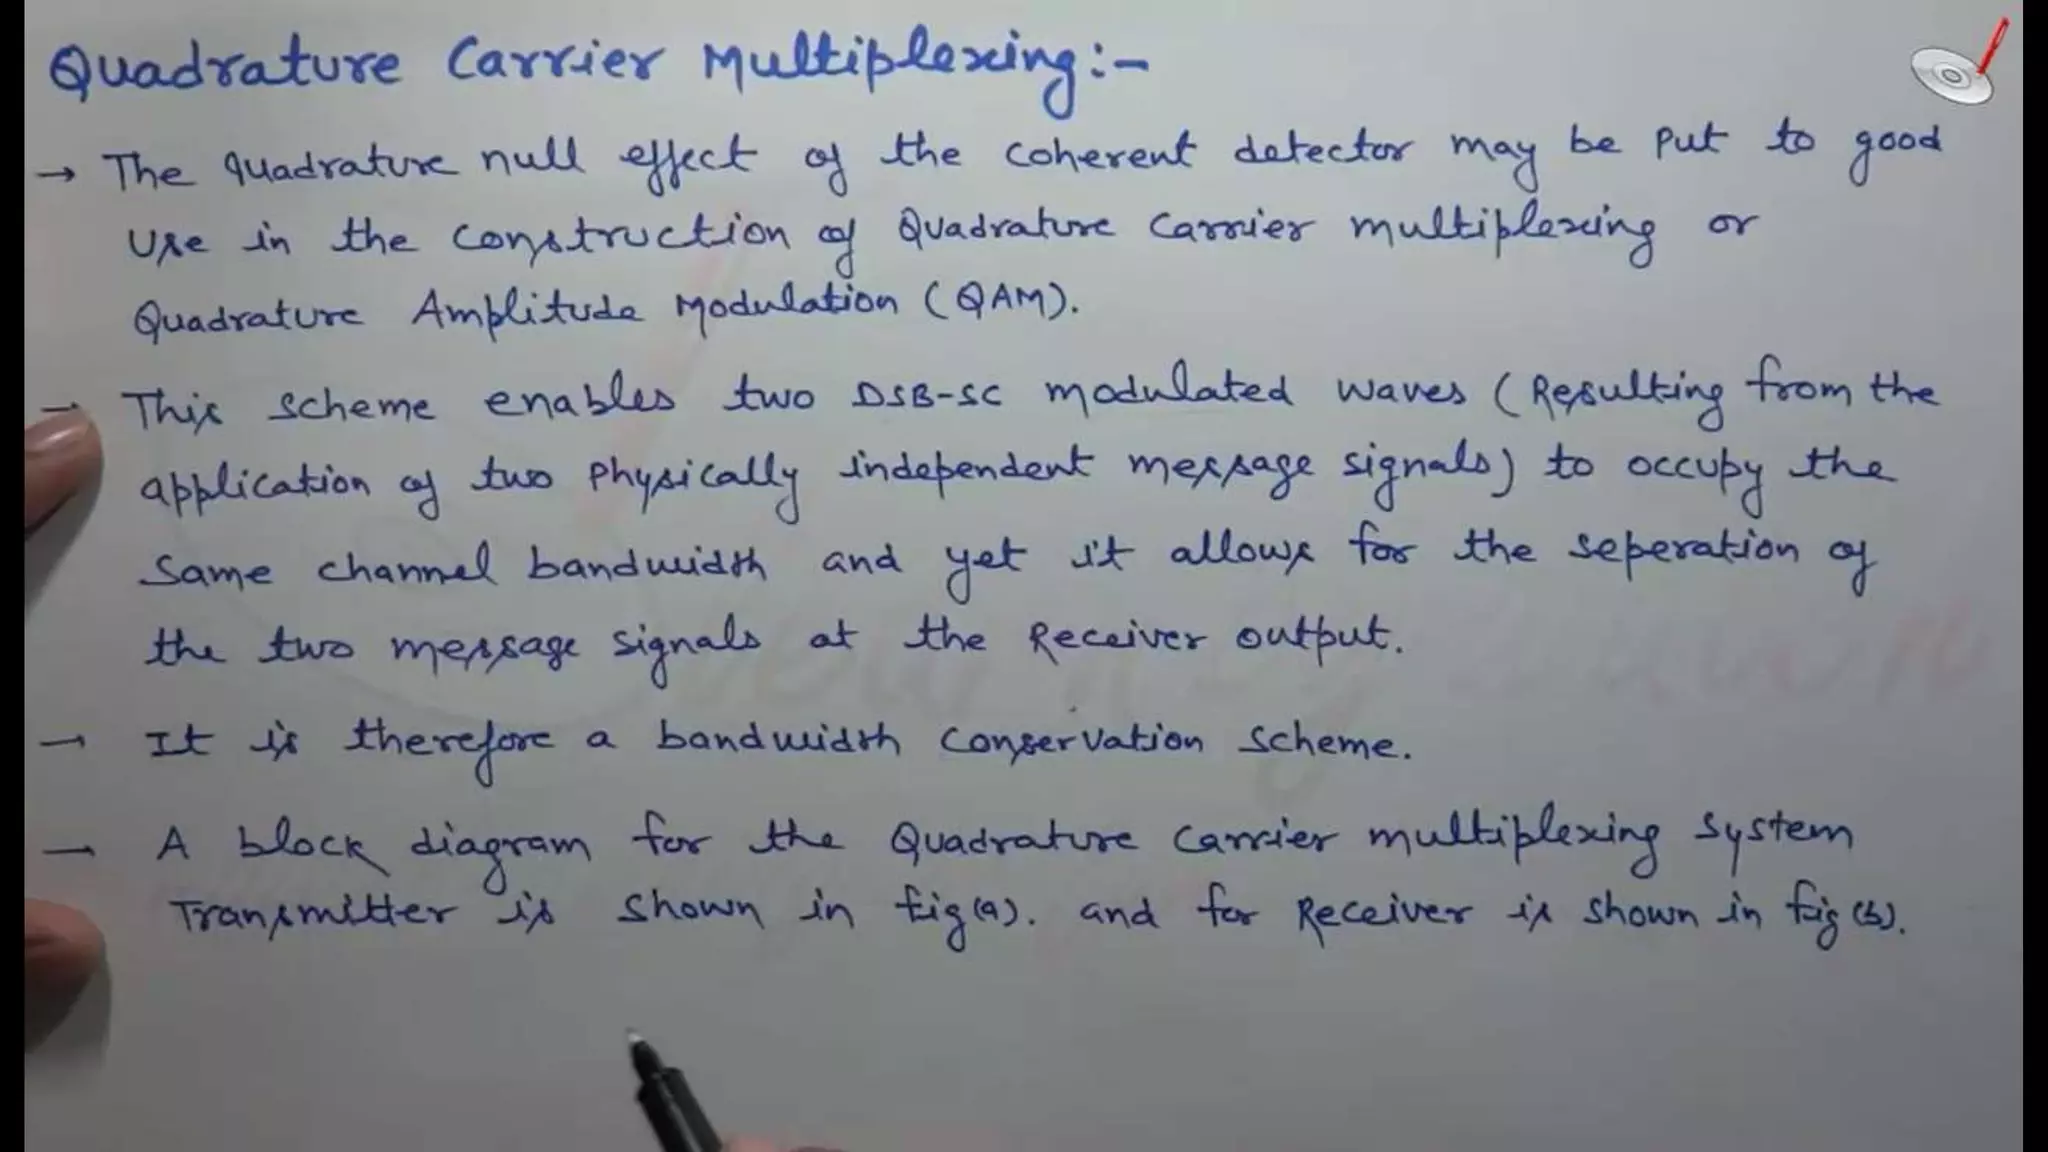 Quadrature Carrier Multiplexing:-
→ The quadrature null effect of the coherent detector may be put to good
use in the construction of Quadrature Carrier multiplexing or
Quadrature Amplitude Modulation (QAM).
→ This scheme enables two DSB-SC modulated waves (Resulting from the
application of two physically independent message signals) to occupy the
same channel bandwidth and yet it allows for the seperation of
the two message signals at the Receiver output.
→ It is therefore a bandwidth conservation scheme.
→ A block diagram for the Quadrature carrier multiplexing system
Transmitter is shown in fig(a). and for Receiver is shown in fig(b).